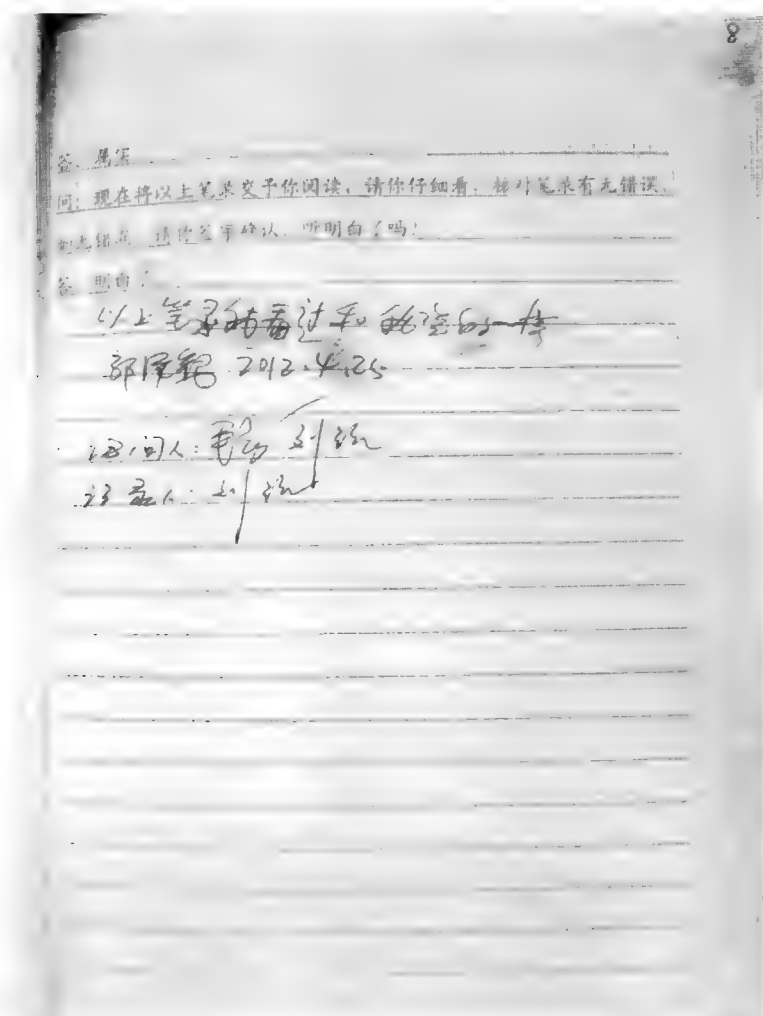 8
答：属实
问：现在将以上笔录交予你阅读，请你仔细看，核对笔录有无错误，
如无错误，请你签字确认，听明白了吗？
答：明白了。
以上笔录我看过和我说的一样
2012.4.25
询问人： 刘
记录人：刘